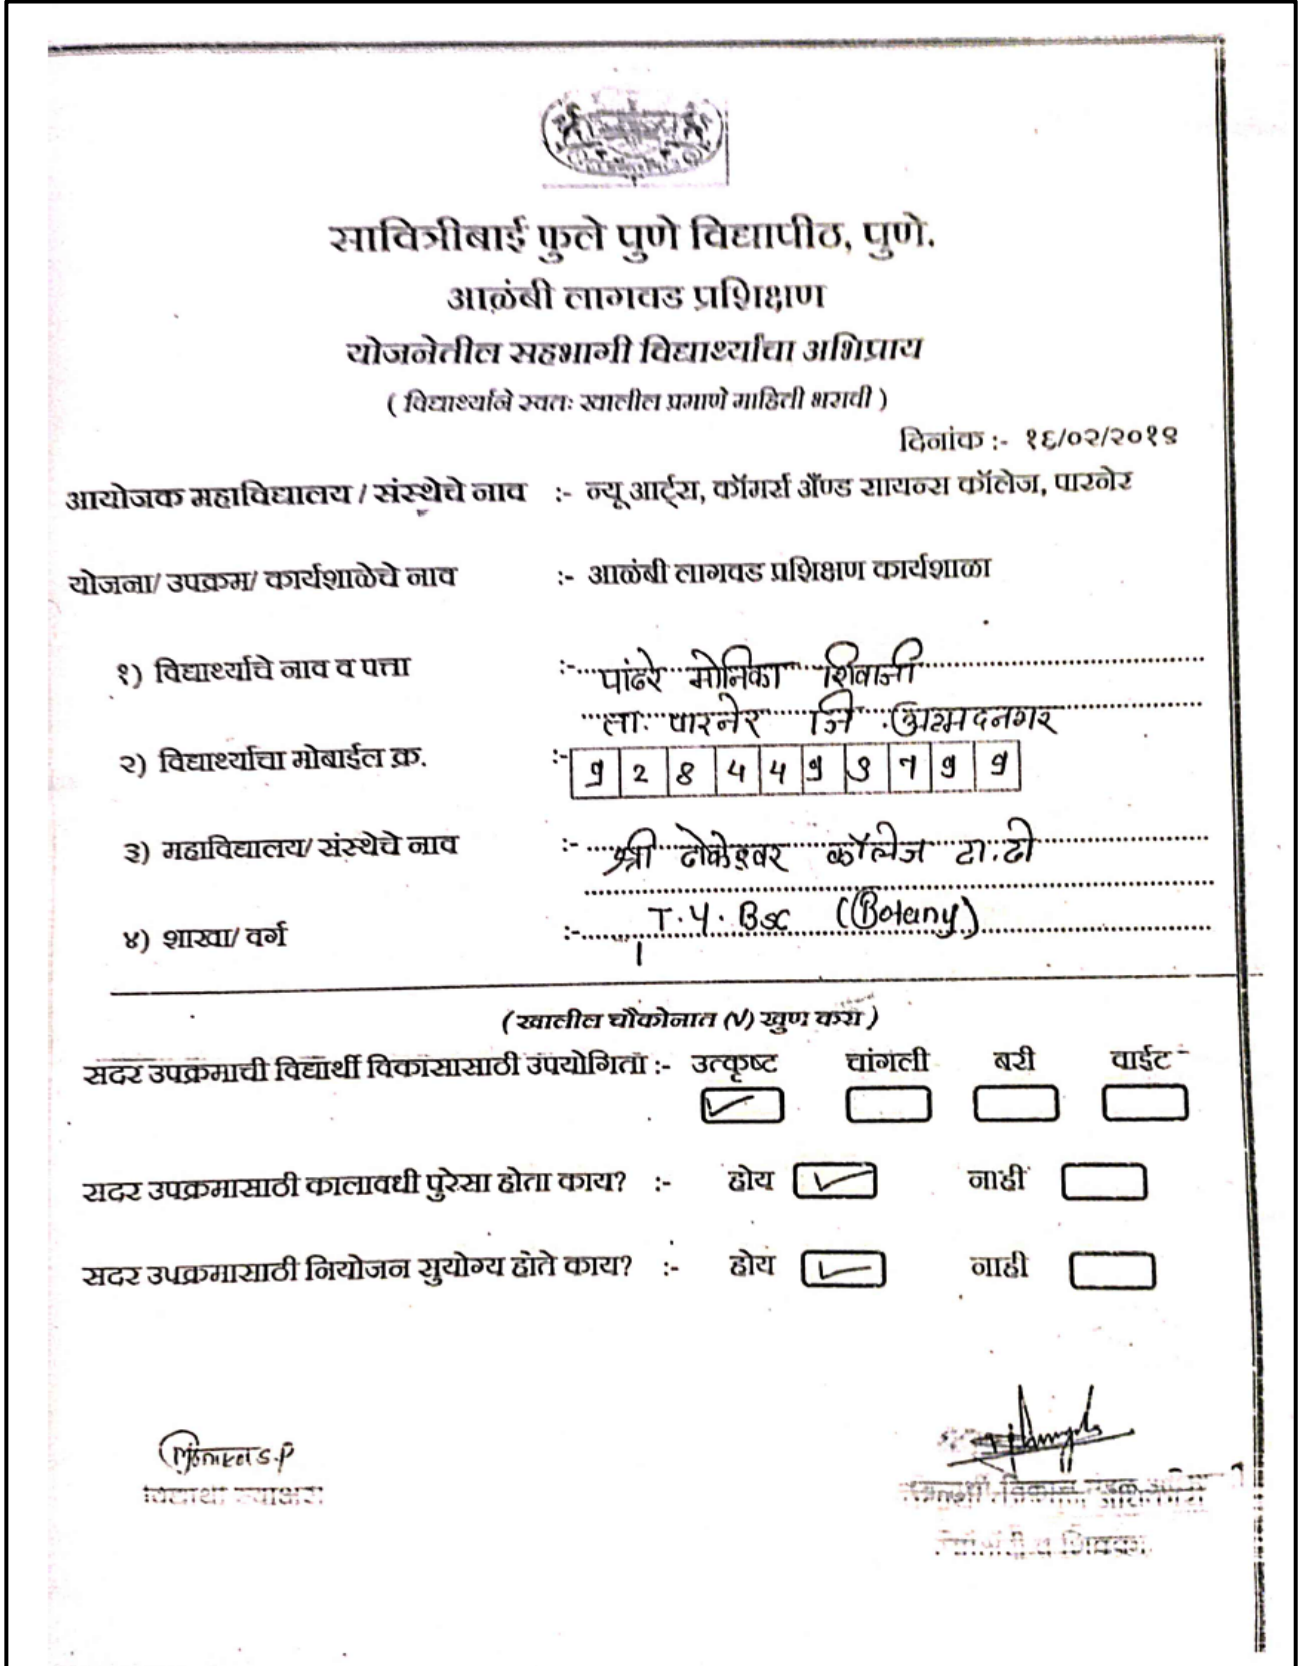 सावित्रीबाई फुले पुणे विद्यापीठ, पुणे.
आळंबी लागवड प्रशिक्षण
योजनेतील सहभागी विद्यार्थ्यांचा अभिप्राय
( विद्यार्थ्याने स्वतः खालील प्रमाणे माहिती भरावी )
दिनांक :- १६/०२/२०१९
आयोजक महाविद्यालय / संस्थेचे नाव :- न्यू आर्ट्स, कॉमर्स अँण्ड सायन्स कॉलेज, पारनेर
योजना/ उपक्रम/ कार्यशाळेचे नाव :- आळंबी लागवड प्रशिक्षण कार्यशाळा
१) विद्यार्थ्याचे नाव व पत्ता :- पांढरे मोनिका शिवाजी
ता. पारनेर जि. अहमदनगर
२) विद्यार्थ्याचा मोबाईल क्र. :-
३) महाविद्यालय/ संस्थेचे नाव :- श्री ढोकेश्वर कॉलेज टा.ढो
४) शाखा/ वर्ग :- T.Y. Bsc (Botany)
(खालील चौकोनात (√) खुण करा )
सदर उपक्रमाची विद्यार्थी विकासासाठी उपयोगिता :- उत्कृष्ट चांगली बरी वाईट
सदर उपक्रमासाठी कालावधी पुरेसा होता काय? :- होय नाही
सदर उपक्रमासाठी नियोजन सुयोग्य होते काय? :- होय नाही
S.P